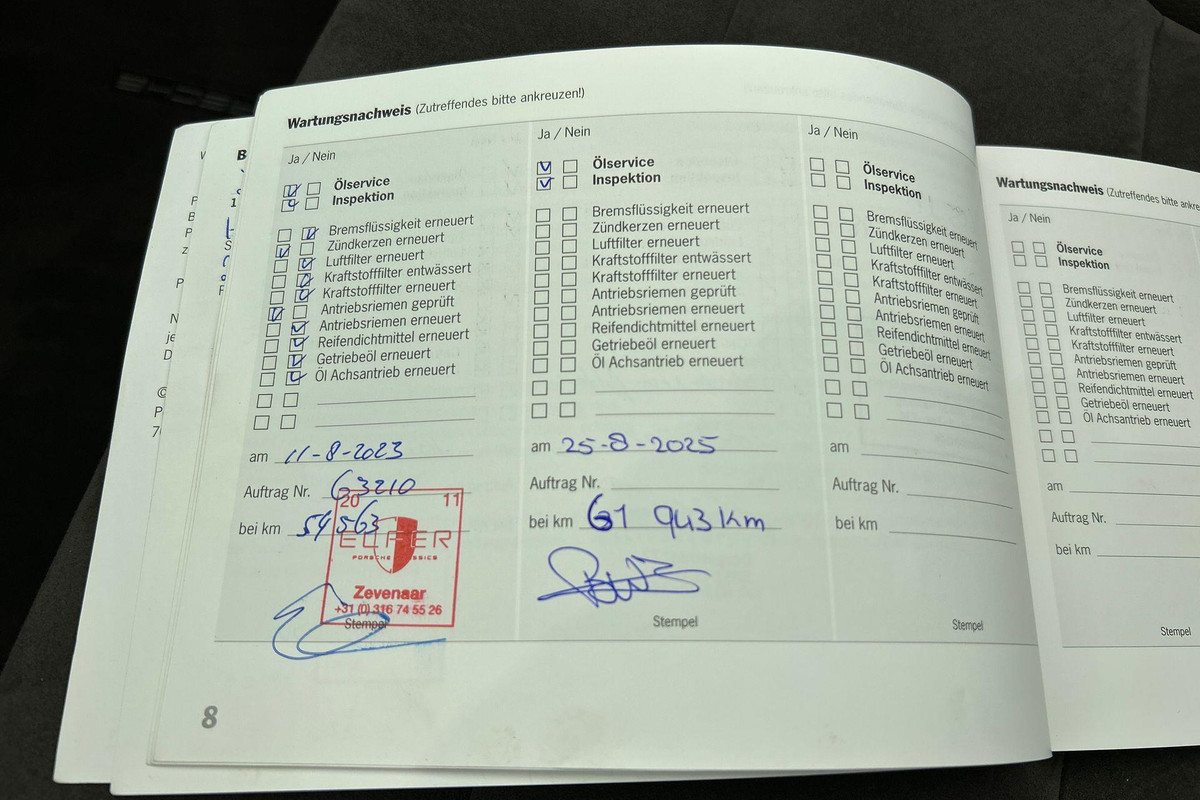 Wartungsnachweis (Zutreffendes bitte ankreuzen!)
Ja / Nein
Ölservice
Inspektion
Bremsflüssigkeit erneuert
Zündkerzen erneuert
Luftfilter erneuert
Kraftstofffilter entwässert
Kraftstofffilter erneuert
Antriebsriemen geprüft
Antriebsriemen erneuert
Reifendichtmittel erneuert
Getriebeöl erneuert
Öl Achsantrieb erneuert
am 11-8-2023
Auftrag Nr. G3210
bei km 54563
20 11
ELFER
Zevenaar
+31 (0) 316 74 55 26
Stempel
Ja / Nein
Ölservice
Inspektion
Bremsflüssigkeit erneuert
Zündkerzen erneuert
Luftfilter erneuert
Kraftstofffilter entwässert
Kraftstofffilter erneuert
Antriebsriemen geprüft
Antriebsriemen erneuert
Reifendichtmittel erneuert
Getriebeöl erneuert
Öl Achsantrieb erneuert
am 25-8-2025
Auftrag Nr.
bei km 61 943 km
Stempel
Ja / Nein
Ölservice
Inspektion
Bremsflüssigkeit erneuert
Zündkerzen erneuert
Luftfilter erneuert
Kraftstofffilter entwässert
Kraftstofffilter erneuert
Antriebsriemen geprüft
Antriebsriemen erneuert
Reifendichtmittel erneuert
Getriebeöl erneuert
Öl Achsantrieb erneuert
am
Auftrag Nr.
bei km
Stempel
8
Wartungsnachweis (Zutreffendes bitte ankre
Ja / Nein
Ölservice
Inspektion
Bremsflüssigkeit erneuert
Zündkerzen erneuert
Luftfilter erneuert
Kraftstofffilter entwässert
Kraftstofffilter erneuert
Antriebsriemen geprüft
Antriebsriemen erneuert
Reifendichtmittel erneuert
Getriebeöl erneuert
Öl Achsantrieb erneuert
am
Auftrag Nr.
bei km
Stempel